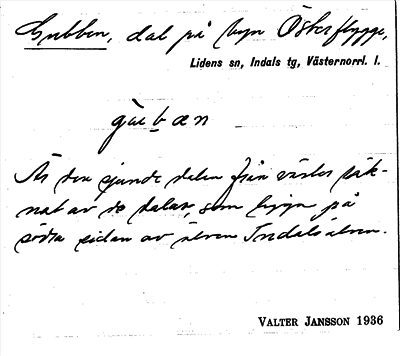 Gubben, dal på byn Österflygge,
Lidens sn, Indals tg, Västernorrl. l.
gu̇b̲æn
Är den sjunde delen från väster räk-
nat av de dalar, som ligga på
södra sidan av älven Indalsälven.
VALTER JANSSON 1936